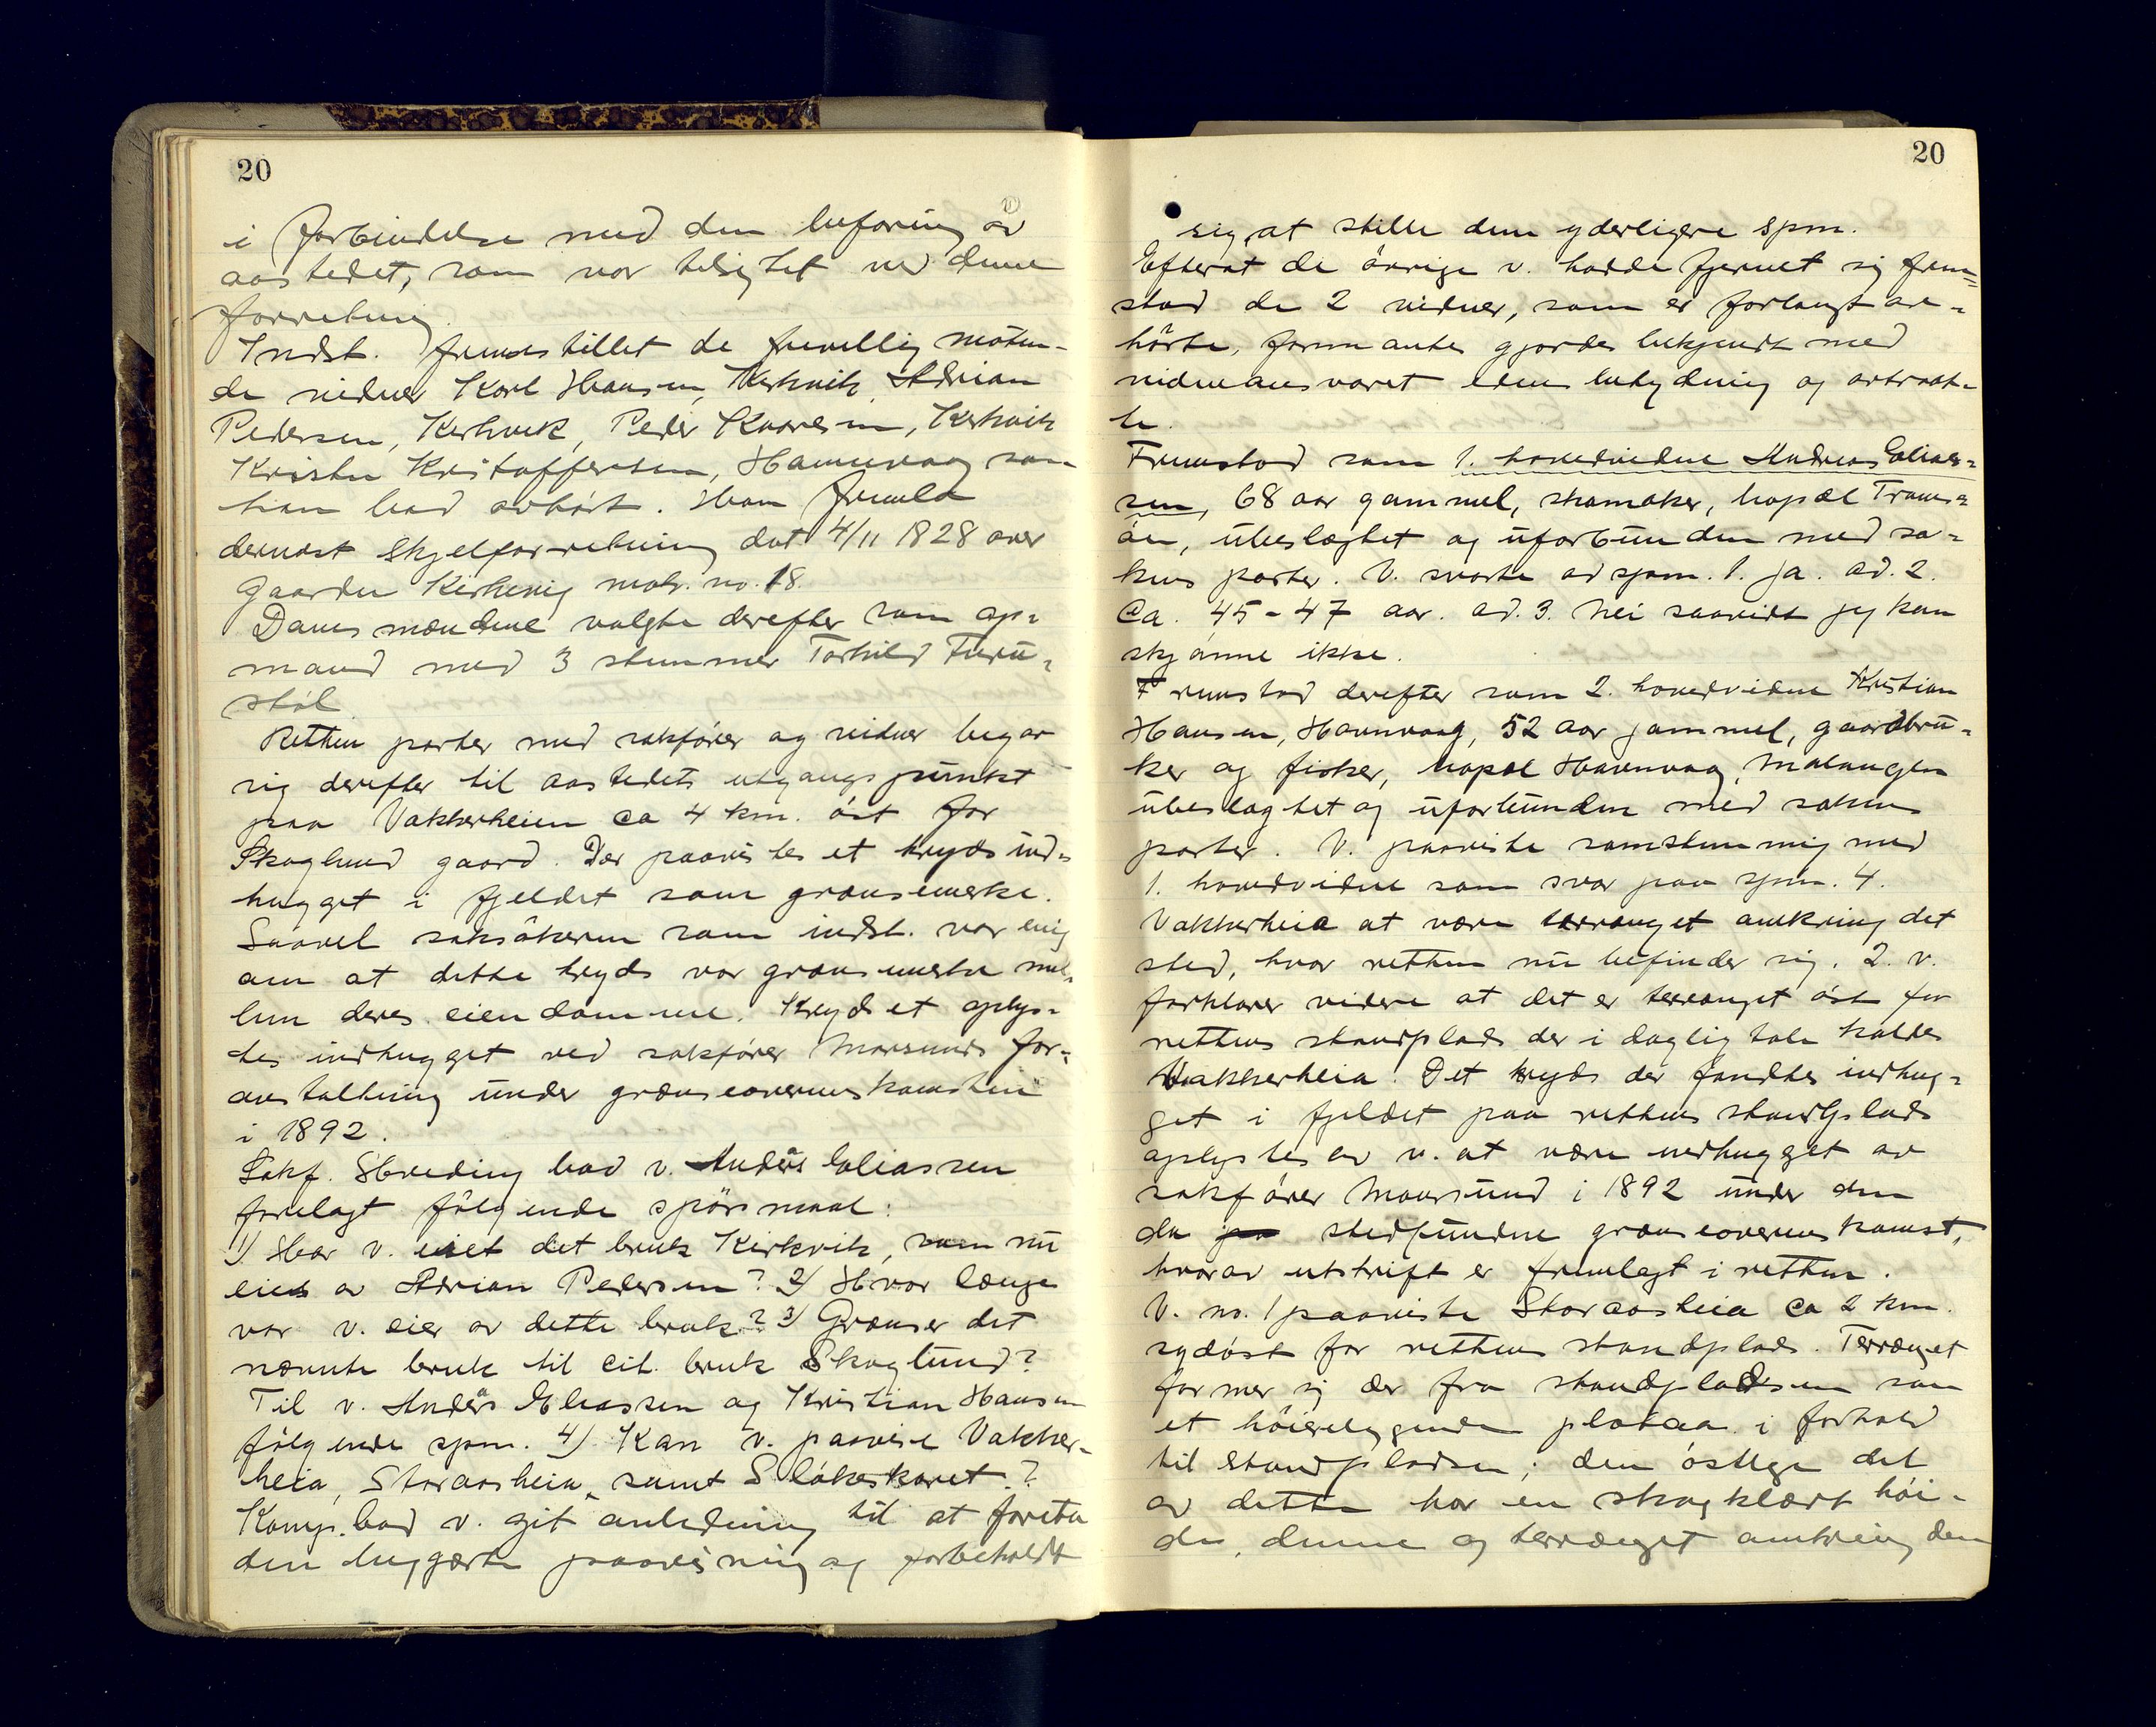 20
i forbindelse med den befaring av
aastedet, som var tilsigtet ved denne
forretning.
Indst. fremstillet de frivillig møten-
de vidner Karl Hansen, Kirkvik, Adrian
Pedersen, Kirkvik, Peder Kaaresen, Kirkvik
Krister Kristoffersen, Hamnvaag som
han bad avhørt. Han fremla
dernæst skjelforretning dat 4/11 1828 over
gaarden Kirkevig matr. no. 18.
Davns mændene valgte derefter som op-
mand med 3 stemmer Torkild Furu-
støl.
Retten parter med sakfører og vidner begav
sig derefter til aastedets utgangspunkt
paa Vakkerheien ca 4 km. øst for
Skoglund gaard. Der paavistes et kryds ind-
hugget i fjeldet som grænsemerke.
Saavel saksøkeren som indst. var enig
om at dette kryds var grænsemerke mel-
lem deres eiendomme. Krydset oplys-
tes indhugget ved sakfører Maursunds for-
anstaltning under grænseoverenskomsten
i 1892.
Sakf. Hareding bad v. Anders Eliassen
forelagt følgende spørsmaal:
1) Har v. eiet det bruk Kirkvik, som nu
eies av Adrian Pedersen? 2) Hvor længe
var v. eier av dette bruk? 3) Grænser det
nævnte bruk til cit. bruk Skoglund?
Til v. Anders Eliassen og Kristian Hansen
følgende spm. 4) Kan v. paavise Vakker-
heia, Storaasheia, samt Sløkeskaret?
Komp. bad v. git anledning til at foreta
den begjærte paavisning og forbeholdt
20
sig at stille dem yderligere spm.
Efterat de øvrige v. hadde fjernet sig frem-
stod de 2 vidner, som er forlangt av-
hørte, formantes gjordes bekjendt med
vidneansvaret edens betydning og avtraad-
te.
Fremstod som 1. hovedvidne Andreas Elias-
sen, 68 aar gammel, skomaker, bopæl Troms-
øen, ubeslægtet og uforbunden med sa-
kens parter. V. svarte ad spm. 1. Ja. ad. 2.
Ca. 45-47 aar. ad. 3. Nei saavidt jeg kan
skjønne ikke.
Fremstod derefter som 2. hovedvidne Kristian
Hansen, Havnvaag, 52 aar gammel, gaardbru-
ker og fisker, bopæl Havnvaag, Malangen
ubeslægtet og uforbunden med sakens
parter. V. paaviste samstemmig med
1. hovedvidne som svar paa spm. 4.
Vakkerheia at være terrænget omkring det
sted, hvor retten nu befinder sig. 2. v.
forklarer videre at det er terrænget øst for
rettens standplads der i daglig tale kaldes
Vakkerheia. Det kryds der fandtes indhug-
get i fjeldet paa rettens standplads
oplystes av v. at være indhugget av
sakfører Maursund i 1892 under den
da stedfundne grænseoverenskomst,
hvorav utskrift er fremlagt i retten.
V. no. 1 paaviste Storaasheia ca 2 km.
sydøst for rettens standplads. Terrænget
former sig der fra standpladsen som
et høiereliggende plataa i forhold
til standpladsen; den østlige del
av dette har en skogklædt høi-
de, denne og terrænget omkring den